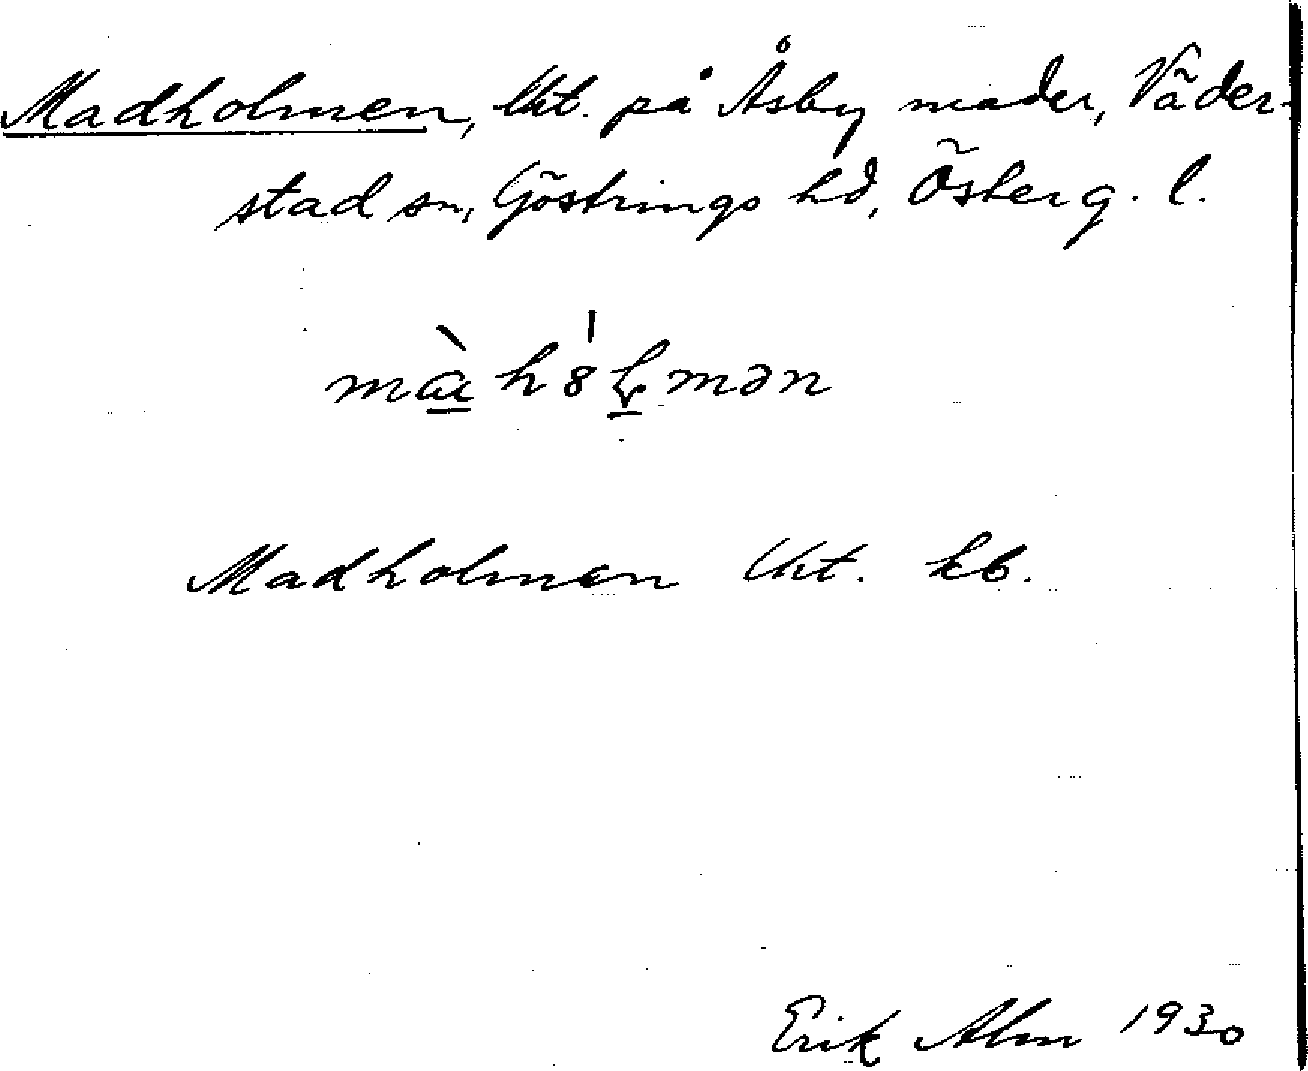 Madholmen, lht. på Åsby mader, Väder-
stad sn, Göstrings hd, Österg. l.
mɑ̀ h8́ɽmən
Madholmen lht. kb.
Erik Alm 1930